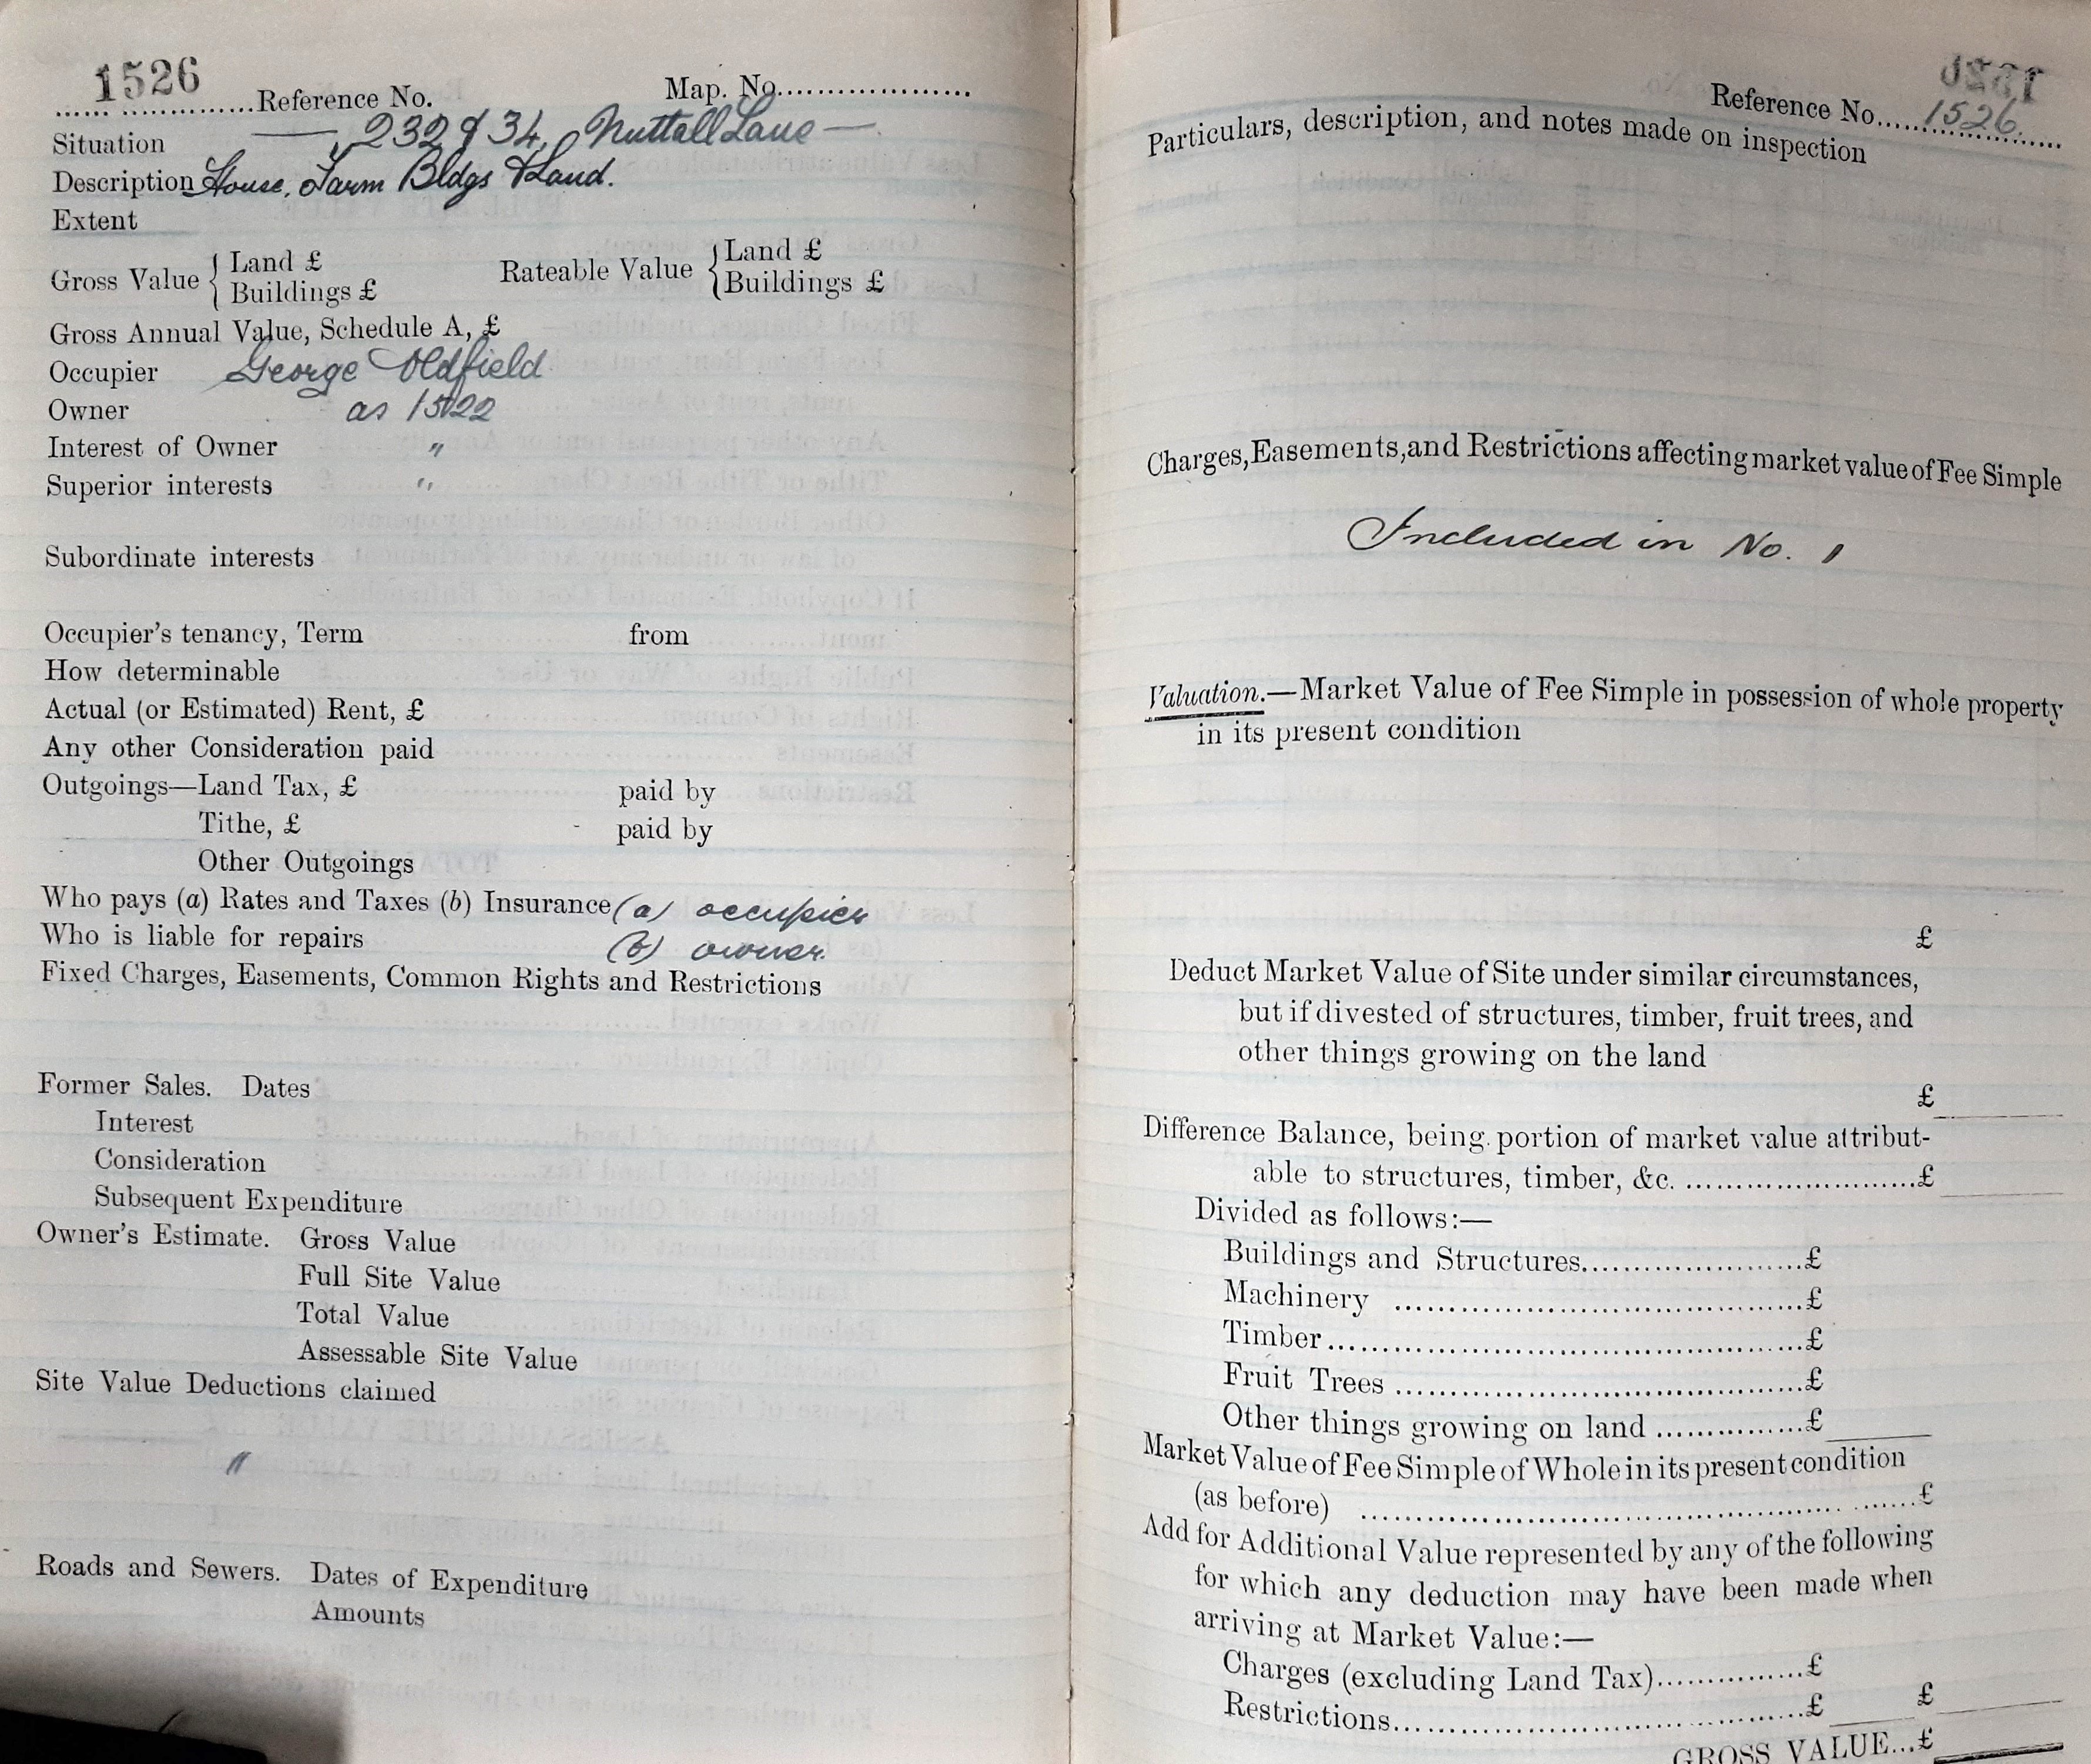 1526 Reference No. Map. No.
Situation — , 232 & 34, Nuttall Lane —
Description House, Farm Bldgs & Land.
Extent
Gross Value { Land £ Rateable Value { Land £
Buildings £ Buildings £
Gross Annual Value, Schedule A, £
Occupier George Oldfield
Owner as 1522
Interest of Owner "
Superior interests "
Subordinate interests
Occupier's tenancy, Term from
How determinable
Actual (or Estimated) Rent, £
Any other Consideration paid
Outgoings—Land Tax, £ paid by
Tithe, £ paid by
Other Outgoings
Who pays (a) Rates and Taxes (b) Insurance (a) occupier
Who is liable for repairs (b) owner.
Fixed Charges, Easements, Common Rights and Restrictions
Former Sales. Dates
Interest
Consideration
Subsequent Expenditure
Owner's Estimate. Gross Value
Full Site Value
Total Value
Assessable Site Value
Site Value Deductions claimed
"
Roads and Sewers. Dates of Expenditure
Amounts
Reference No. 1526.
Particulars, description, and notes made on inspection
Charges, Easements, and Restrictions affecting market value of Fee Simple
Included in No. 1
Valuation.—Market Value of Fee Simple in possession of whole property
in its present condition
£
Deduct Market Value of Site under similar circumstances,
but if divested of structures, timber, fruit trees, and
other things growing on the land
£
Difference Balance, being portion of market value attribut-
able to structures, timber, &c. ........................£
Divided as follows:—
Buildings and Structures........................£
Machinery ........................£
Timber........................£
Fruit Trees ........................£
Other things growing on land ...............£
Market Value of Fee Simple of Whole in its present condition
(as before) ........................£
Add for Additional Value represented by any of the following
for which any deduction may have been made when
arriving at Market Value:—
Charges (excluding Land Tax)...............£
Restrictions........................£ £
GROSS VALUE...£